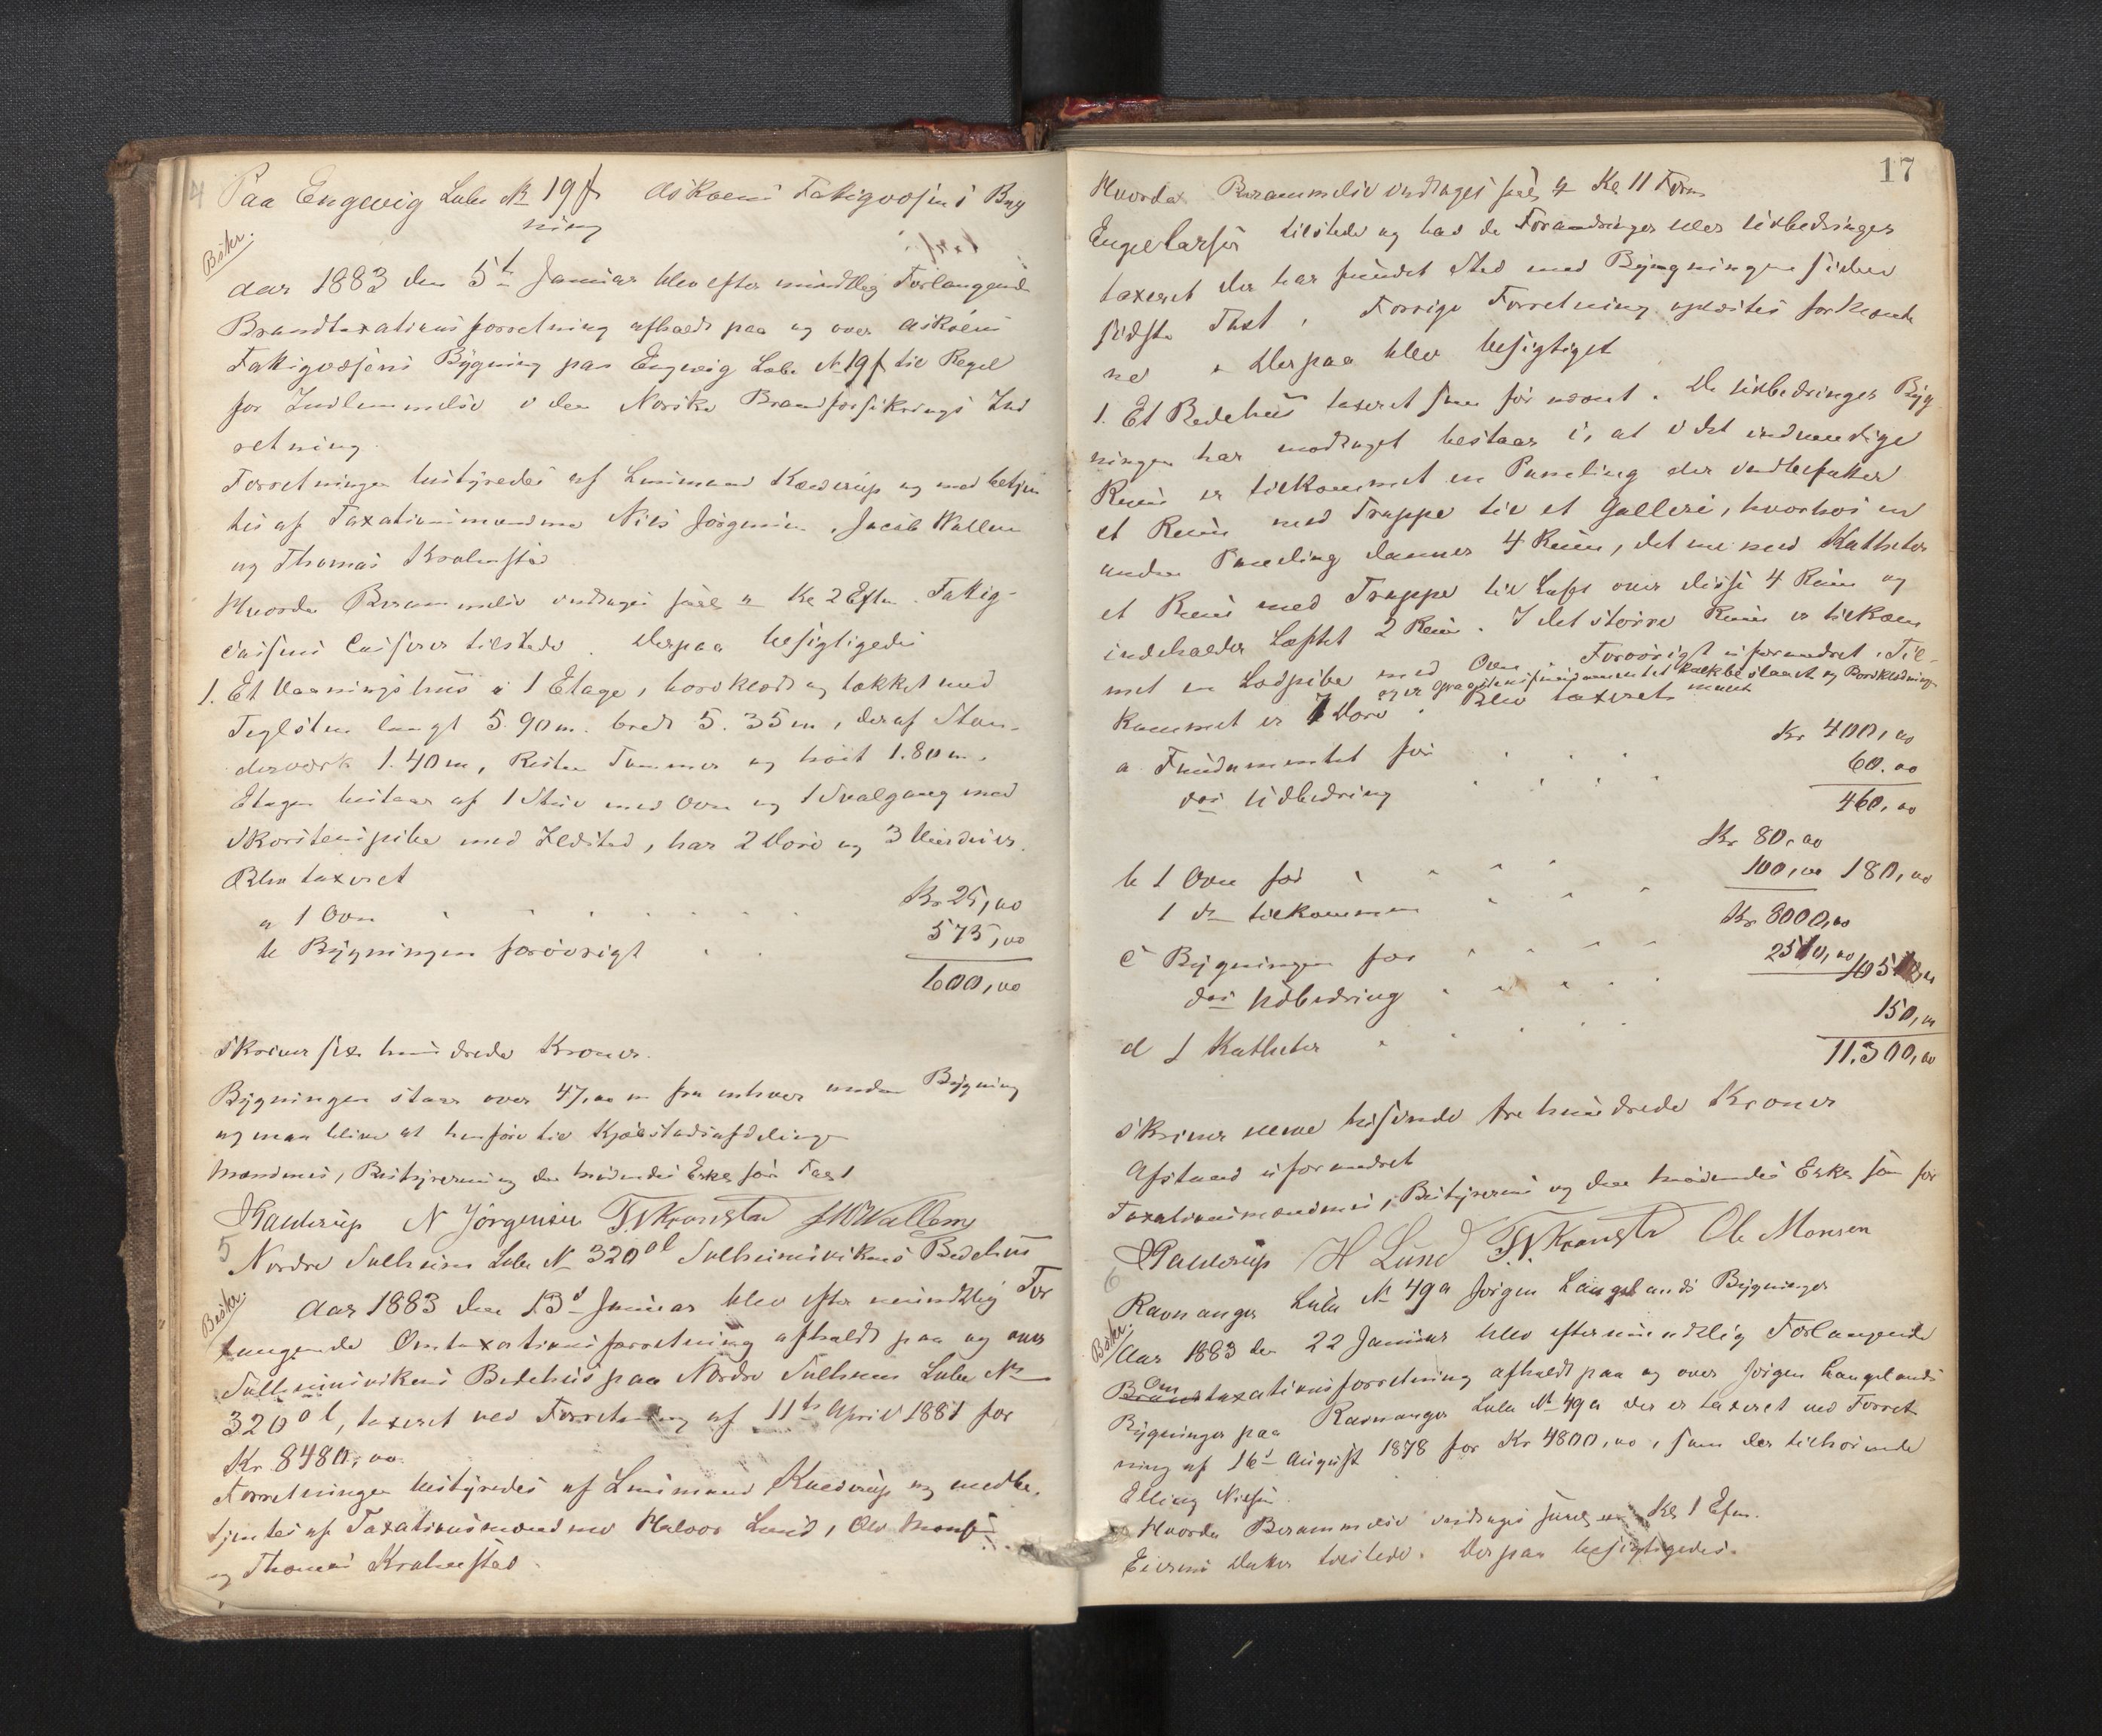 4 Paa Engevig Løbe No 19 f Askøens Fattigvæsens Byg
ning
Beskr.
Aar 1883 den 5te Januar blev efter mundtlig Forlangende
Brandtaxationsforretning afholdt paa og over Askøens
Fattigvæsens Bygning paa Engevig Løbe No 19 f til Regel
for Indlemmelse i den Norske Brandforsikrings Ind
retning.
Forretningen bestyredes af Lensmand Kaldrup og med betjen
tes af Taxationsmændene Nils Jörgensen, Jacob Wallem
og Thomas Krohnstad
Hvorda Berammelse undtages Kl 2 Eftm. Fattig-
væsens Casserer tilstede. Derpaa besigtigedes
1. Et Vaaningshus i 1 Etage, bordklædt og tækket med
Teglsten langt 5.90 m. bredt 5.35 m, deraf Sten-
derverk 1.40 m, Resten Tømmer og høit 1.80 m.
Etagen bestaar af 1 Stue med Ovn og 1 Svalgang med
Skorstenspibe med Ildsted, har 2 Døre og 3 Vinduer.
Blev taxeret
a 1 Ovn Kr 25,00
b Bygningen forøvrigt 575,00
600,00
skriver sex hundrede Kroner.
Bygningen staar over 47,00 m fra enhver anden Bygning
og maa blive at henføre til Kjøbstadsafdelingen
Mændenes, Bestyrerens og den mødendes Exks før Taxt
Kaldrup N Jörgensen T. Kronstad J M Wallem
5 Nordre Solheim Løbe No 320 ol Solheimsvikens Bedehus
Beskr.
Aar 1883 den 13d Januar blev efter mundtlig For
langende Omtaxationsforretning afholdt paa og over
Solheimsvikens Bedehus paa Nordre Solheim Løbe No
320 ol, taxeret ved Forretning af 11te April 1881 for
Kr. 8480,00.
Forretningen bestyredes af Lensmand Kaldrup og medbe-
tjentes af Taxationsmændene Halvor Lund, Ole Monsen
og Thomas Krohnstad.
17
Hvorda Berammelse undtages Kl 11 Form
Engel Larsen tilstede og bad de Forandringer eller Udbedringer
taxeret der har fundet Sted med Bygningen siden
sidste Taxt. Forrige Forretning oplæstes forkomte
ne. Derpaa blev besigtiget
1. Et Bedehus taxeret som før nævnt. De Udbedringer Byg
ningen har modtaget bestaar i, at i det indvendige
Rum er tilkommet en Paneling der indbefatter
et Rum med Trappe til et Galleri, hvorhos en
anden Paneling danner 4 Rum, det ene med Katheter
et Rum med Trappe til Loft over disse 4 Rum og
indeholder Loftet 2 Rum. I det større Rum er tilkom
met en Lodpibe med Ovn. Forøvrigt uforandret. Til-
og er Graastensfundamentet kalkbeslaaet og Bordklædningen malet
kommet er 7 Døre. Blev taxeret
a Fundamentet før Kr 400,00
dets Udbedring 60,00
460,00
b 1 Ovn før Kr 80,00
1 do tilkommen 100,00 180,00
c Bygningen før Kr 8000,00
dets Udbedring 2510,00 10510,00
d 1 Katheter 150,00
11.300,00
skriver elleve tusende tre hundrede Kroner
Afstand uforandret
Taxationsmændenes, Bestyrerens og den mødendes Exks som før
Kaldrup H Lund T. Kronstad Ole Monsen
6 Ravnanger Løbe No 49a Jørgen Langelands Bygninger
Beskr.
Aar 1883 den 22 Januar blev efter mundtlig Forlangende
Brand Omtaxationsforretning afholdt paa og over Jørgen Langelands
Bygninger paa Ravnanger Løbe No 49a der er taxeret ved Forret
ning af 16d August 1878 for Kr 4800,00, som der tilhørende
Elling Nielsen
Hvorda Berammelse undtages Kl 1 Efm.
Eierens Datter tilstede. Derpaa besigtigedes.